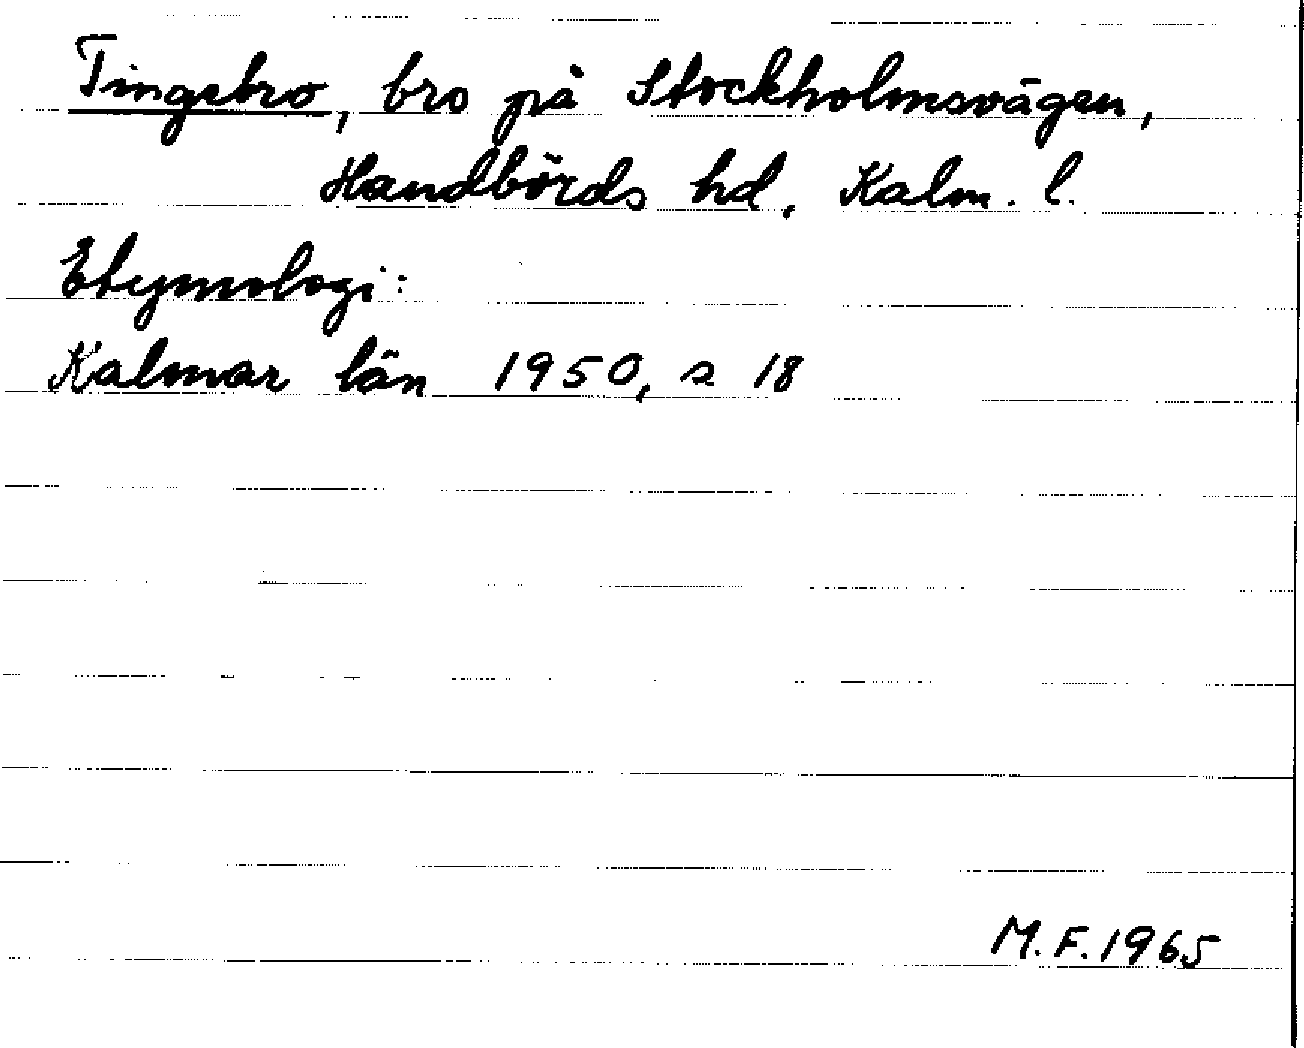 Tingsbro, bro på Stockholmsvägen,
Handbörds hd, Kalm. l.
Etymologi:
Kalmar län 1950, s 18
M.F. 1965